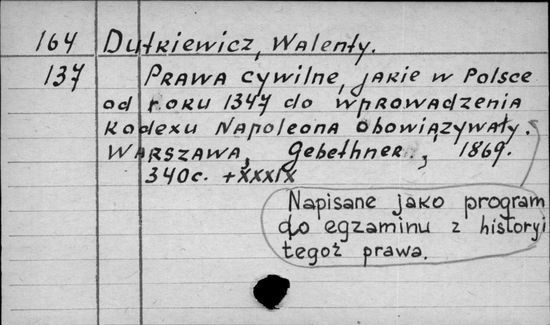 164 Dutkiewicz, Walenty.
137 Prawa cywilne, jakie w Polsce
od roku 1347 do wprowadzenia
Kodexu Napoleona obowiązywały.
Warszawa, Gebethner., 1869.
340c. +XXXIX
Napisane jako program
do egzaminu z historyi
tegoż prawa.